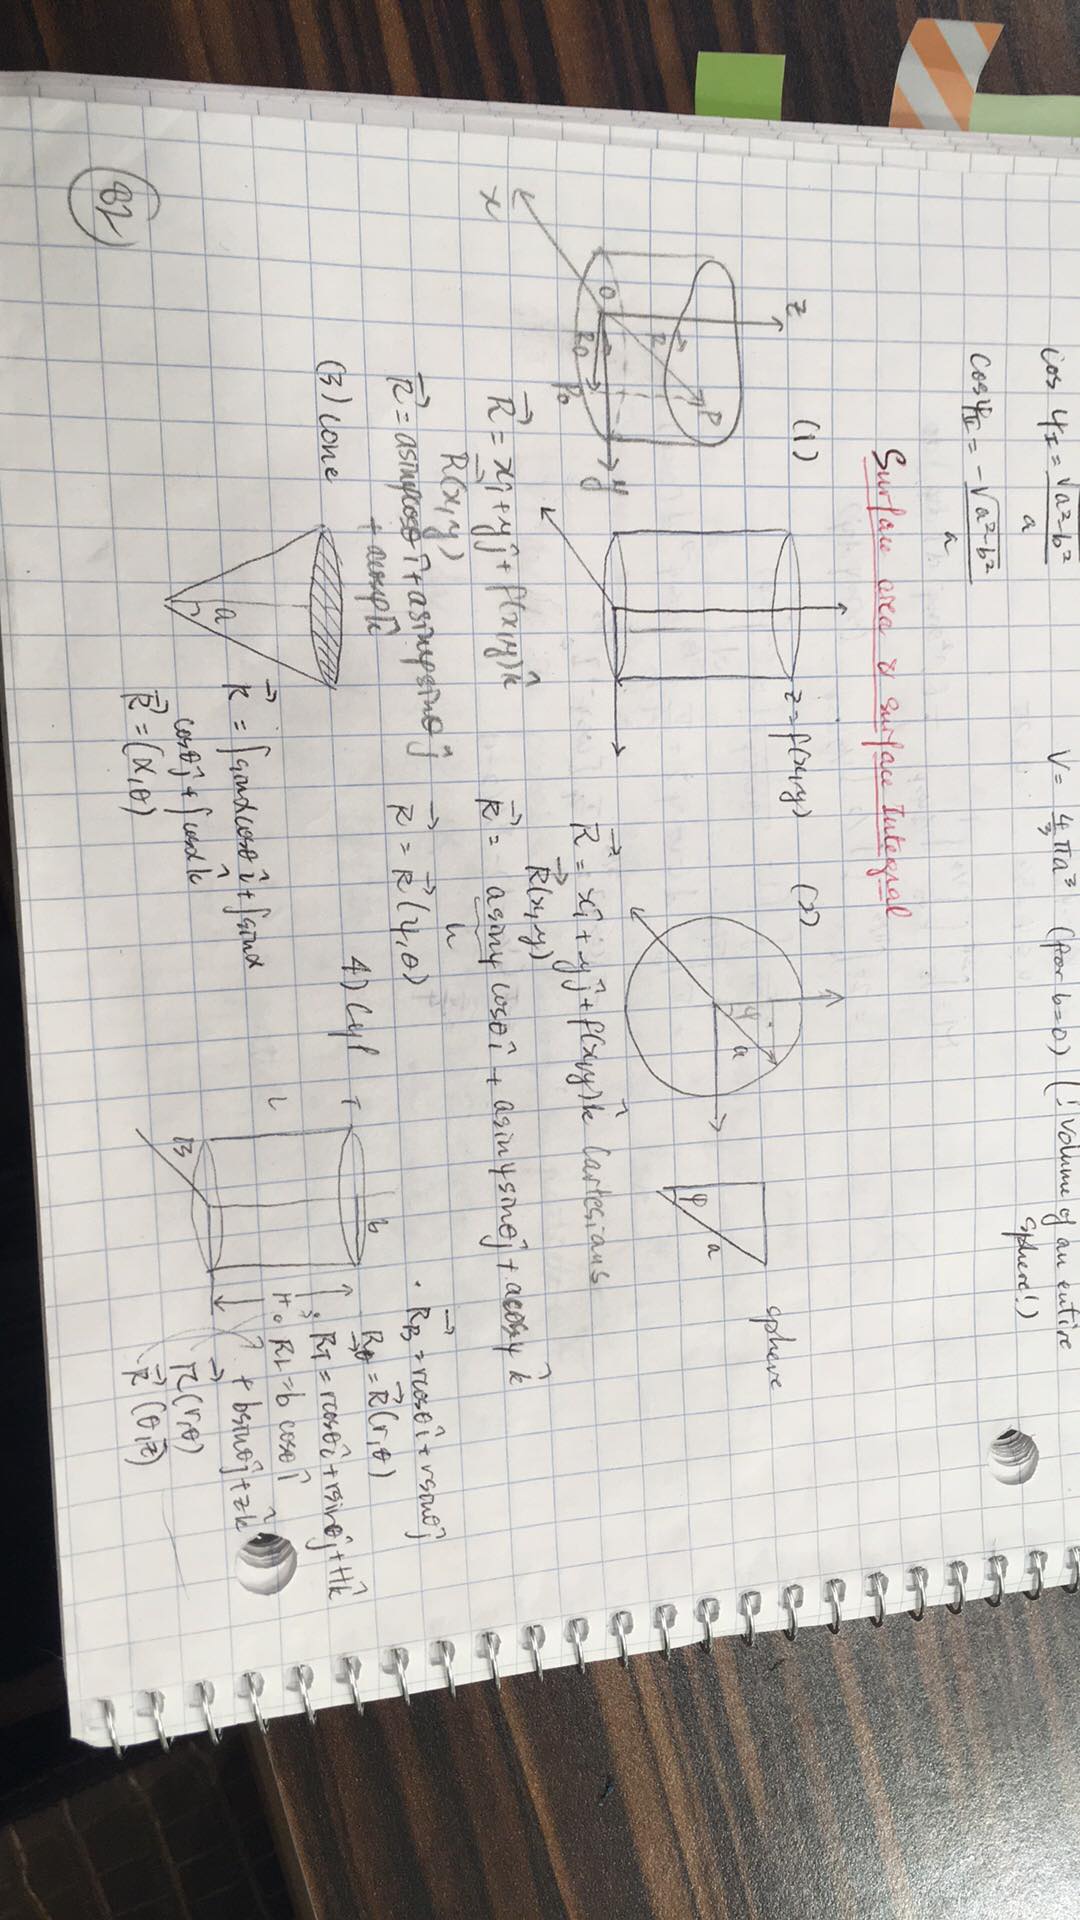 cos ψ_I = √(a²-b²) / a
V = 4/3 πa³ (for b=0) (! Volume of an entire
sphere!)
cos ψ_II = -√(a²-b²) / a
Surface area & surface Integral
(1)
z
z = f(x,y)
P
R
O
R0
P0
y
x
(2)
φ
a
sphere
φ
a
R⃗ = xî + yĵ + f(x,y)k̂
R⃗(x,y)
R⃗ = asinφcosθ î + asinφsinθ ĵ
+ acosφ k̂
R⃗ = xî + yĵ + f(x,y)k̂ Cartesians
R⃗(x,y)
R⃗ = asinψ cosθ î + asinψ sinθ ĵ + acosψ k̂
R⃗ = R⃗(ψ,θ)
(3) cone
a
R⃗ = ∫sinαcosθ î + ∫sinα
cosθ ĵ + ∫cosα k̂
R⃗ = (α,θ)
4) Cyl
T
b
L
H
B
R⃗_B = rcosθ î + rsinθ ĵ
= R⃗(r,θ)
R⃗_T = rcosθ î + rsinθ ĵ + Hk̂
RL = b cosθ î
+ bsinθ ĵ + zk̂
R⃗(r,θ)
R⃗(θ,z)
82